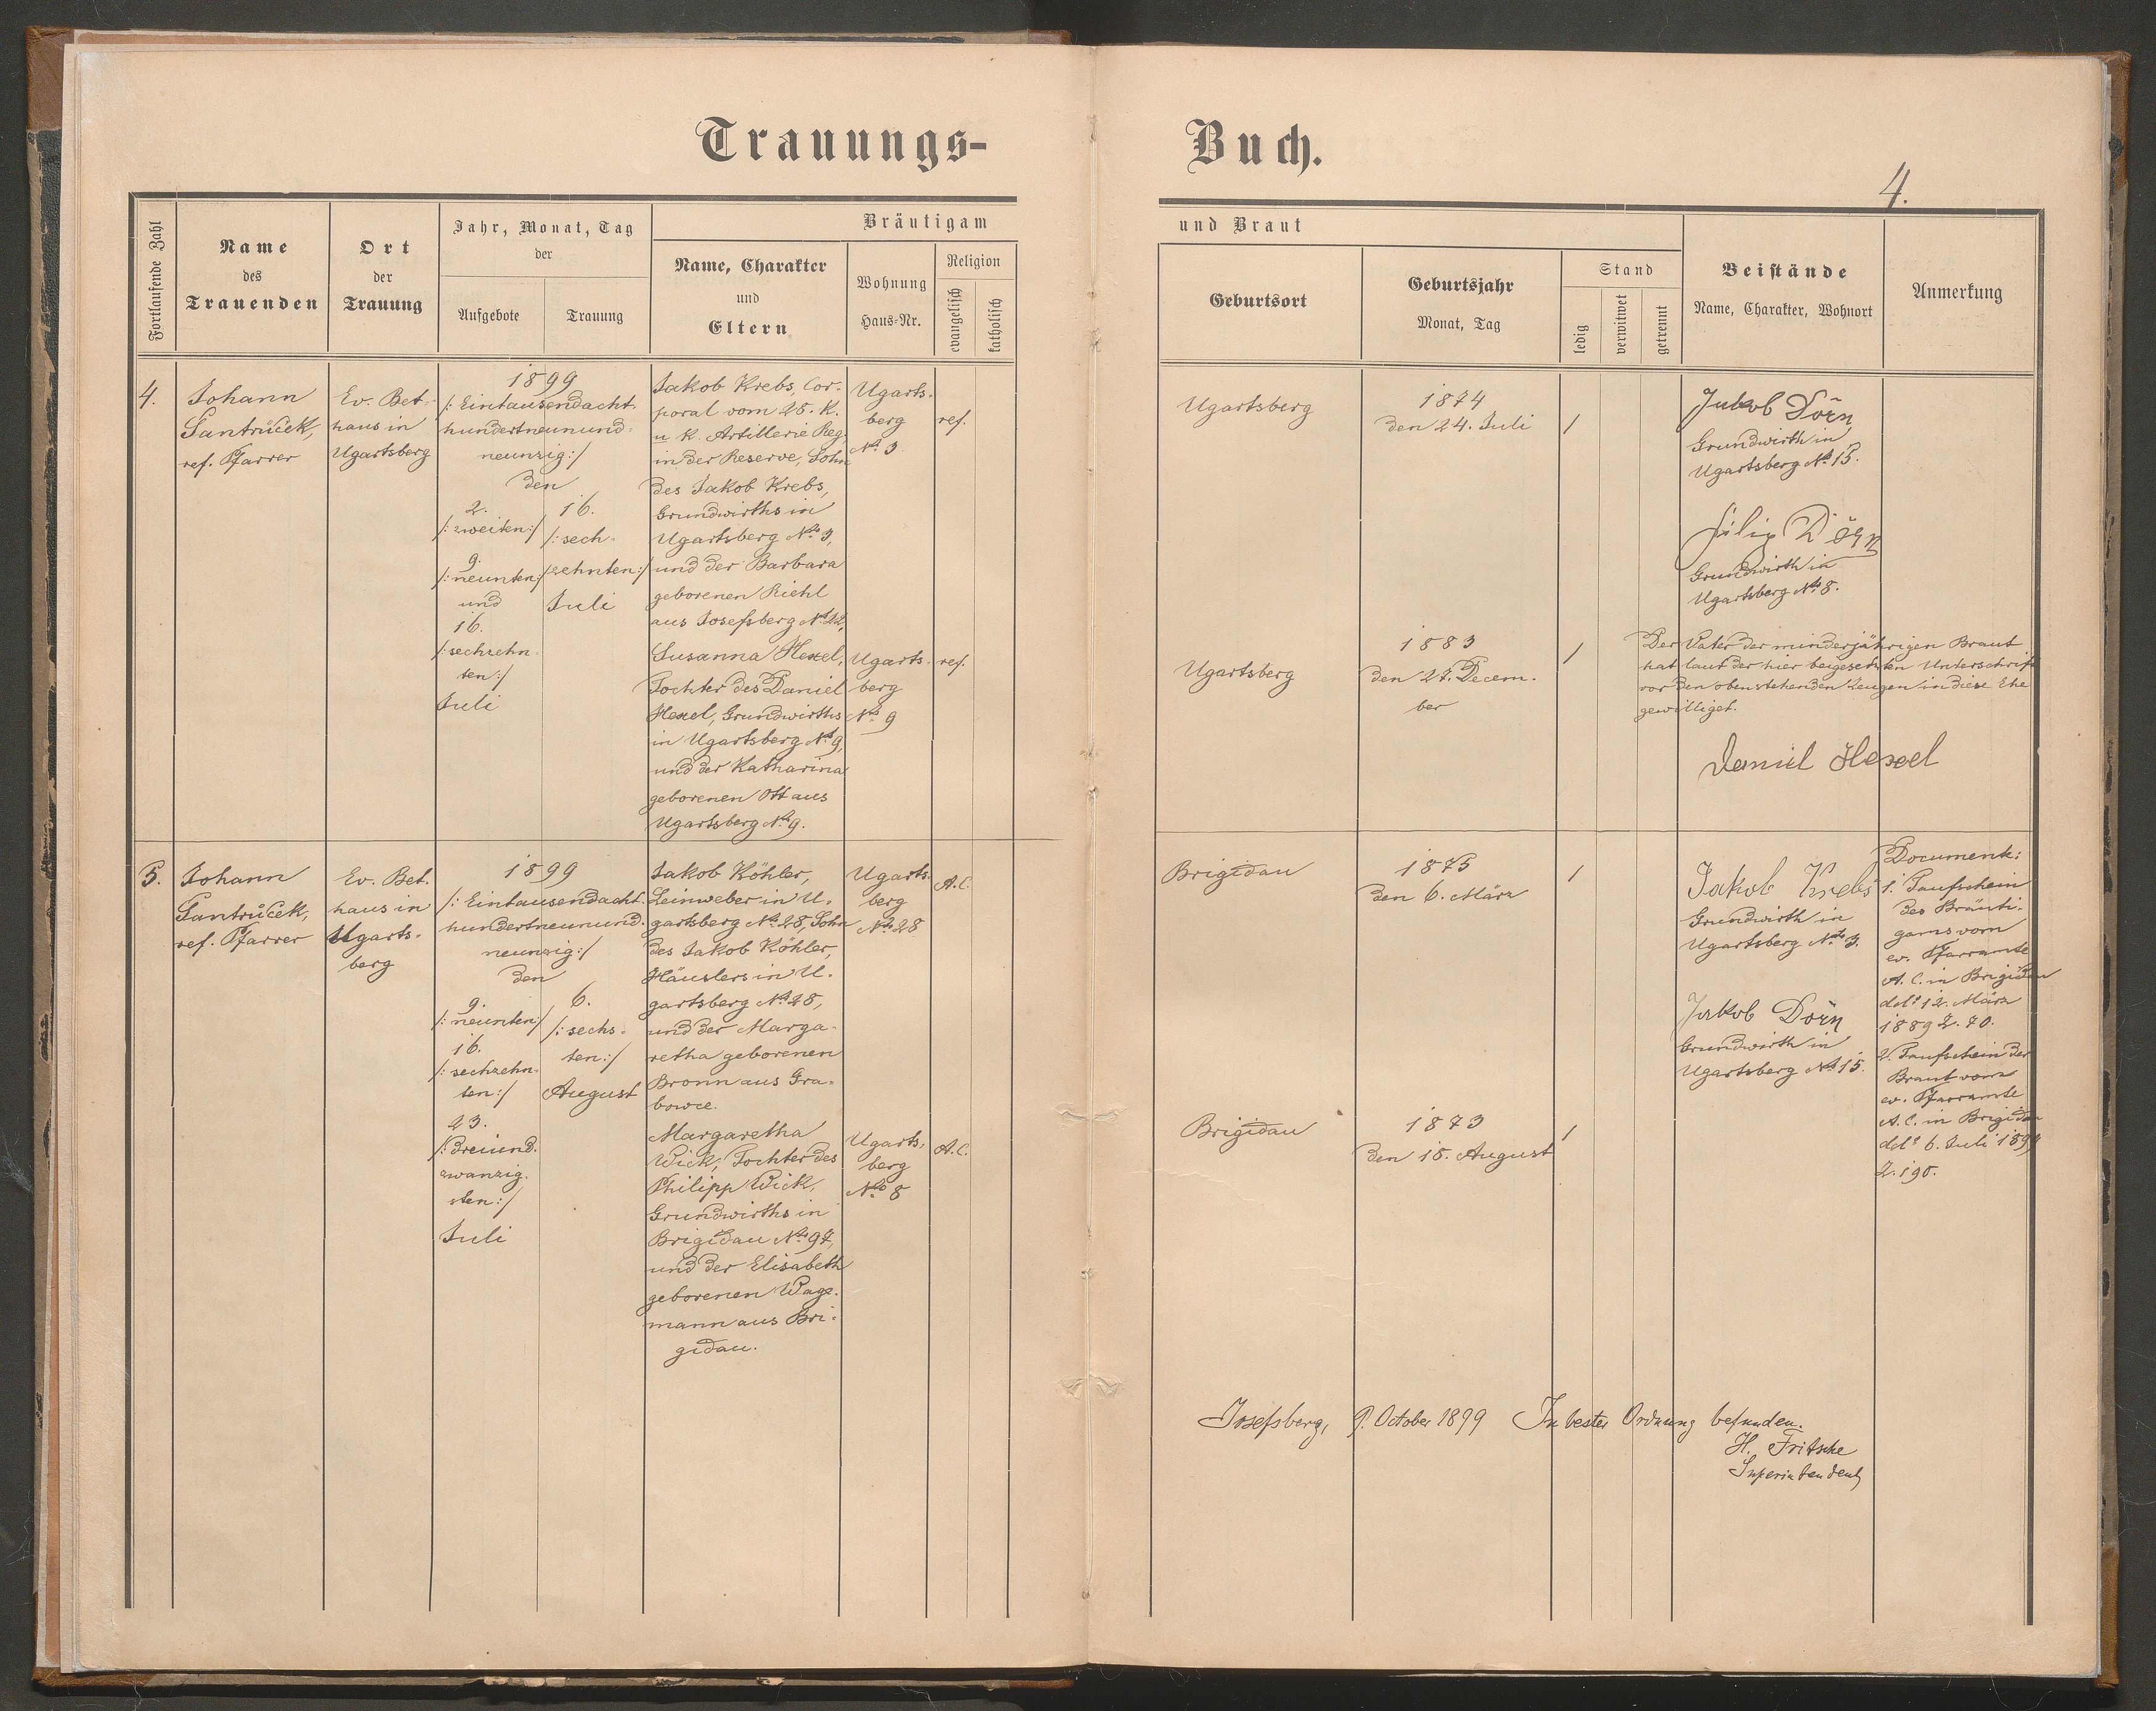 Trauungs-
Buch.
4.
Fortlaufende Zahl
Name
des
Trauenden
Ort
der
Trauung
Jahr, Monat, Tag
der
Aufgebote
Trauung
Bräutigam
Name, Charakter
und
Eltern
Wohnung
Haus-Nr.
Religion
evangelisch
katholisch
und Braut
Geburtsort
Geburtsjahr
Monat, Tag
Stand
ledig
verwitwet
getrennt
Beistände
Name, Charakter, Wohnort
Anmerkung
4.
Johann
Šantrůček,
ref. Pfarrer
Ev. Bet-
haus in
Ugartsberg
1899
/: Eintausendacht-
hundertneunund-
neunzig :/
den
2.
/: zweiten :/
9.
/: neunten :/
und
16.
/: sechzehn-
ten :/
Juli
16.
/: sech-
zehnten :/
Juli
Jakob Krebs, Cor-
poral vom 28. K.
u. K. Artillerie Reg.
in der Reserve, Sohn
des Jakob Krebs,
Grundwirths in
Ugartsberg No. 3,
und der Barbara
geborenen Riehl
aus Josefsberg No. 22,
Ugarts-
berg
No. 3
ref.
Susanna Hexel,
Tochter des Daniel
Hexel, Grundwirths
in Ugartsberg No. 9,
und der Katharina
geborenen Ott aus
Ugartsberg No. 9.
Ugarts-
berg
No. 9
ref.
Ugartsberg
1874
den 24. Juli
1
Jakob Dörn
Grundwirth in
Ugartsberg No. 15.
Filip Dörn
Grundwirth in
Ugartsberg No. 8.
Ugartsberg
1883
den 27. Decem-
ber
1
Der Vater der minderjährigen Braut
hat laut der hier beigesetzten Unterschrift
vor den obenstehenden Zeugen in diese Ehe
gewilliget.
Daniel Hexel
5.
Johann
Šantrůček,
ref. Pfarrer
Ev. Bet-
haus in
Ugarts-
berg
1899
/: Eintausendacht-
hundertneunund-
neunzig :/
den
9.
/: neunten :/
16.
/: sechzehn-
ten :/
23.
/: dreiund-
zwanzig-
sten :/
Juli
6.
/: sechs-
ten :/
August
Jakob Köhler,
Leinweber in U-
gartsberg No. 28, Sohn
des Jakob Köhler,
Häuslers in U-
gartsberg No. 28,
und der Marga-
retha geborenen
Bronn aus Gra-
bowce.
Ugarts-
berg
No. 28
A.C.
Margaretha
Wick, Tochter des
Philipp Wick,
Grundwirths in
Brigidau No. 97,
und der Elisabeth
geborenen Wage-
mann aus Bri-
gidau.
Ugarts-
berg
No. 8
A.C.
Brigidau
1875
den 6. März
1
Jakob Krebs
Grundwirth in
Ugartsberg No. 3.
Jakob Dörn
Grundwirth in
Ugartsberg No. 15.
Document:
1. Taufschein
des Bräuti-
gams vom
ev. Pfarramte
A.C. in Brigidau
ddo. 12. März
1889 Z. 70.
2. Taufschein der
Braut vom
ev. Pfarramte
A.C. in Brigidau
ddo. 6. Juli 1899
Z. 190.
Brigidau
1873
den 18. August
1
Josefsberg, 9. October 1899 In bester Ordnung befunden.
H. Fritsche
Superintendent